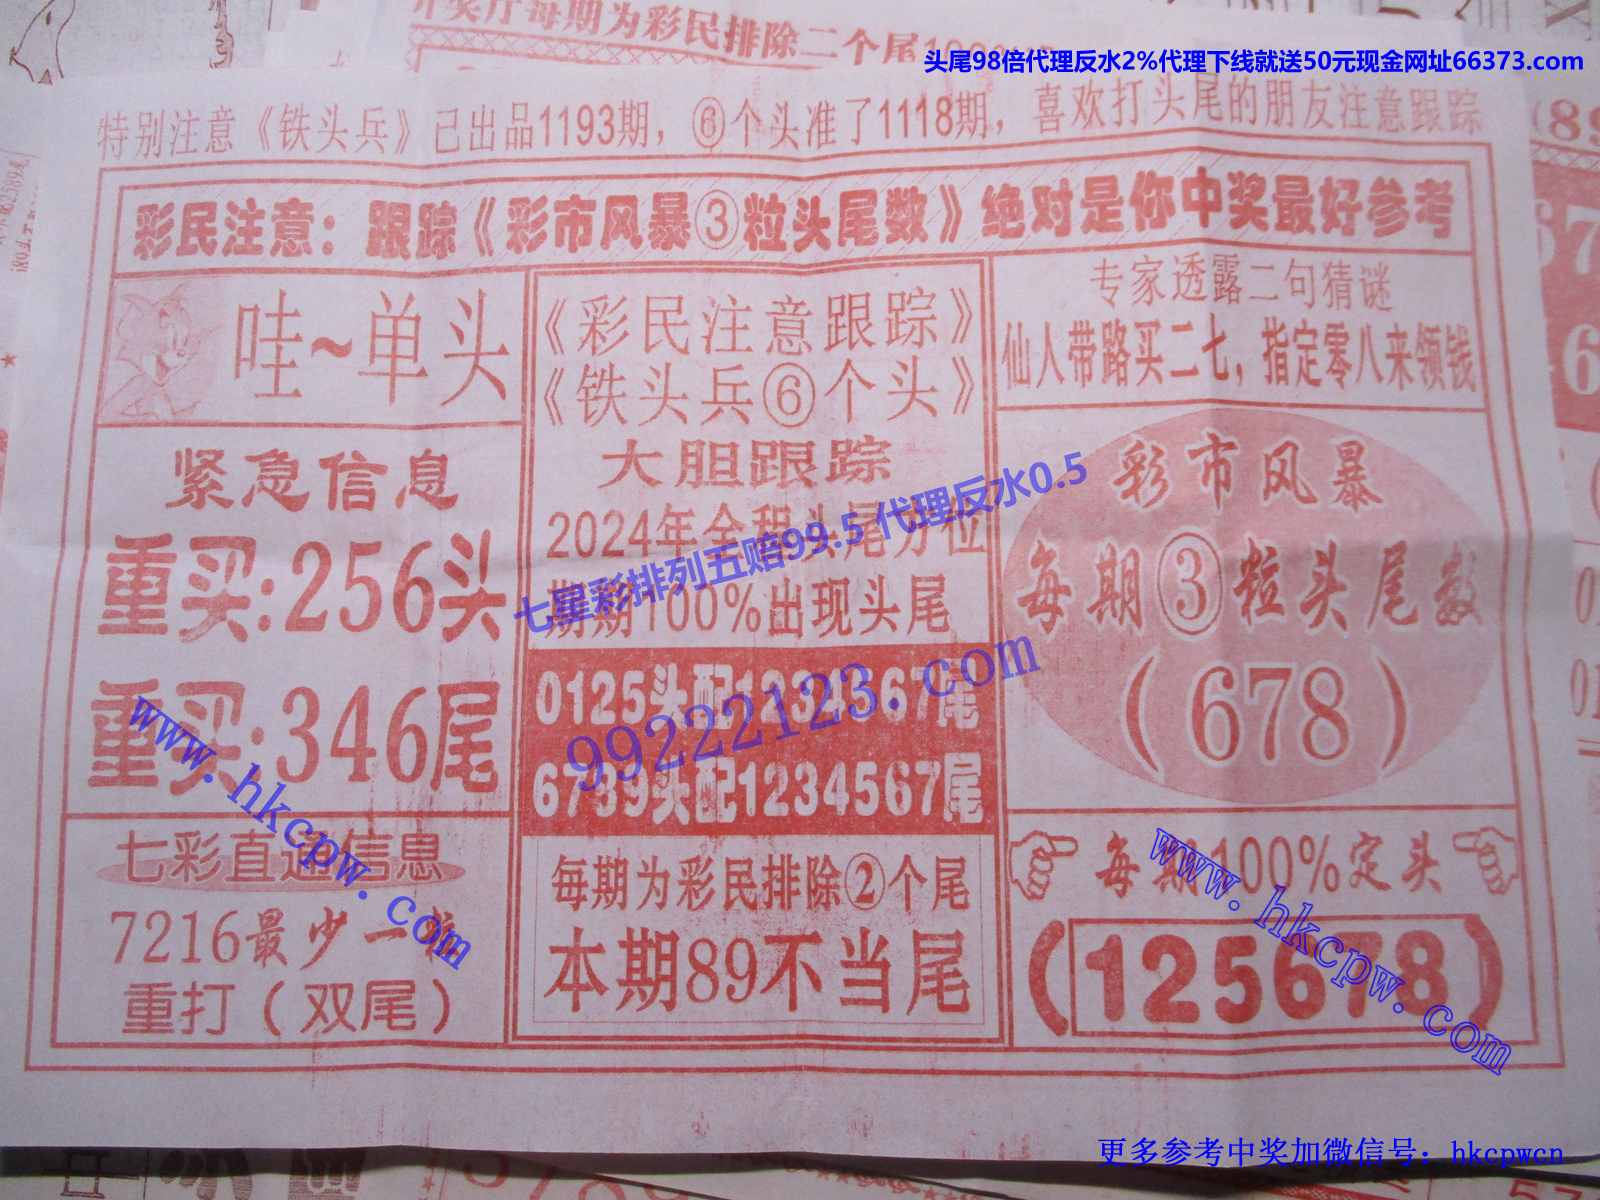 开奖厅每期为彩民排除二个尾
头尾98倍代理反水2%代理下线就送50元现金网址66373.com
特别注意《铁头兵》己出品1193期，⑥个头准了1118期，喜欢打头尾的朋友注意跟踪
彩民注意：跟踪《彩市风暴③粒头尾数》绝对是你中奖最好参考
哇~单头
紧急信息
重买:256头
重买:346尾
七彩直通信息
7216最少一粒
重打（双尾）
《彩民注意跟踪》
《铁头兵⑥个头》
大胆跟踪
2024年全程头尾方位
期期100%出现头尾
0125头配1234567尾
6739头配1234567尾
每期为彩民排除②个尾
本期89不当尾
专家透露二句猜谜
仙人带路买二七，指定零八来领钱
彩市风暴
每期③粒头尾数
（678）
每期100%定头
（125678）
七星彩排列五赔99.5 代理反水0.5
99222123.com
www.hkcpw.com
www.hkcpw.com
更多参考中奖加微信号：hkcpwcn